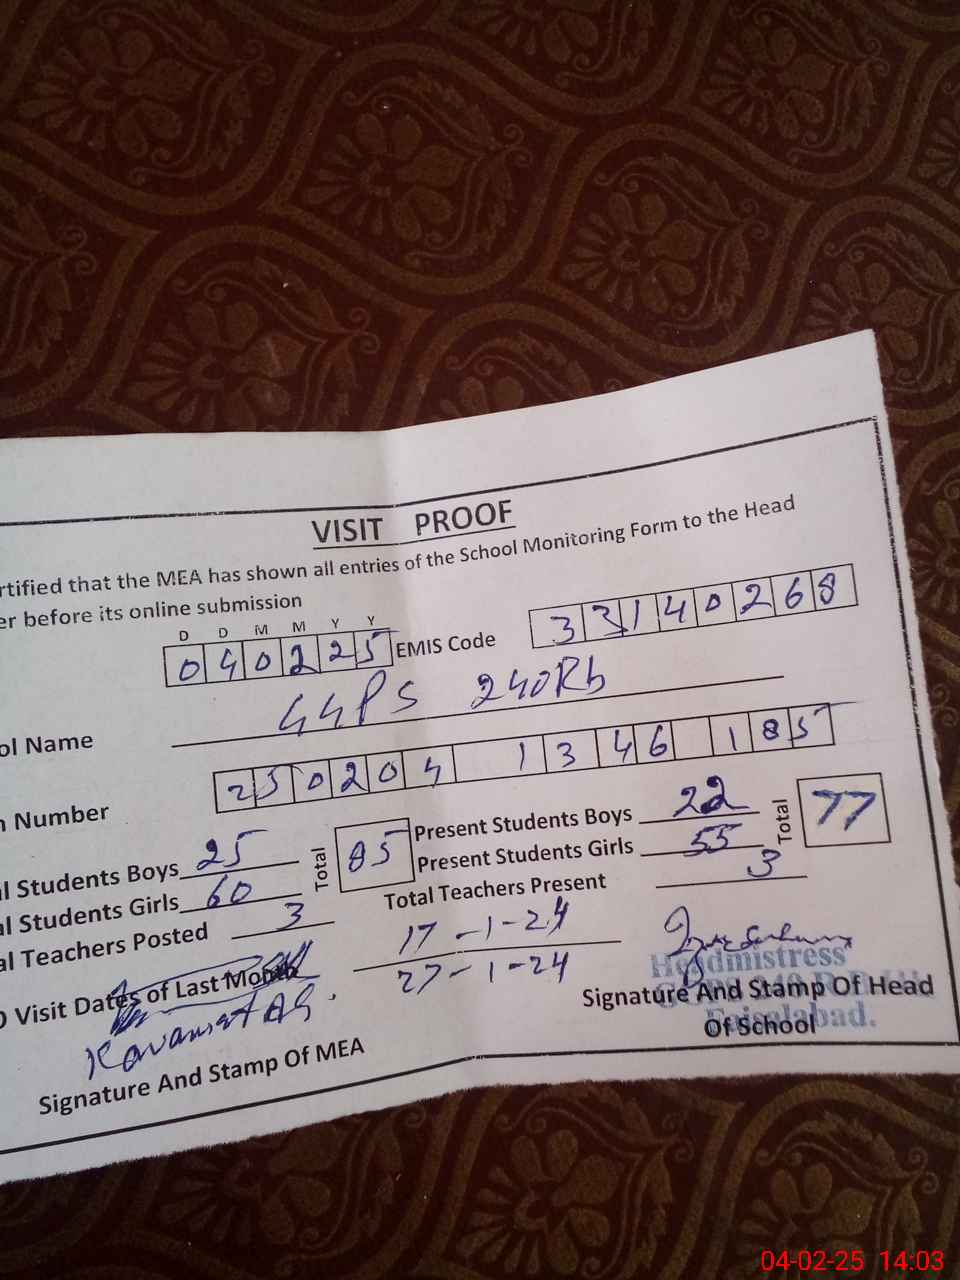 VISIT PROOF
rtified that the MEA has shown all entries of the School Monitoring Form to the Head
er before its online submission
D D M M Y Y
040225 EMIS Code 33140268
ol Name GGPS 240Rb
n Number 250204 1346 185
l Students Boys 25 Total 85 Present Students Boys 22 Total 77
l Students Girls 60 Present Students Girls 55
al Teachers Posted 3 Total Teachers Present 3
O Visit Dates of Last Month 17-1-24
27-1-24
Headmistress
Signature And Stamp Of Head
Of School
Faisalabad.
Signature And Stamp Of MEA
04-02-25 14:03